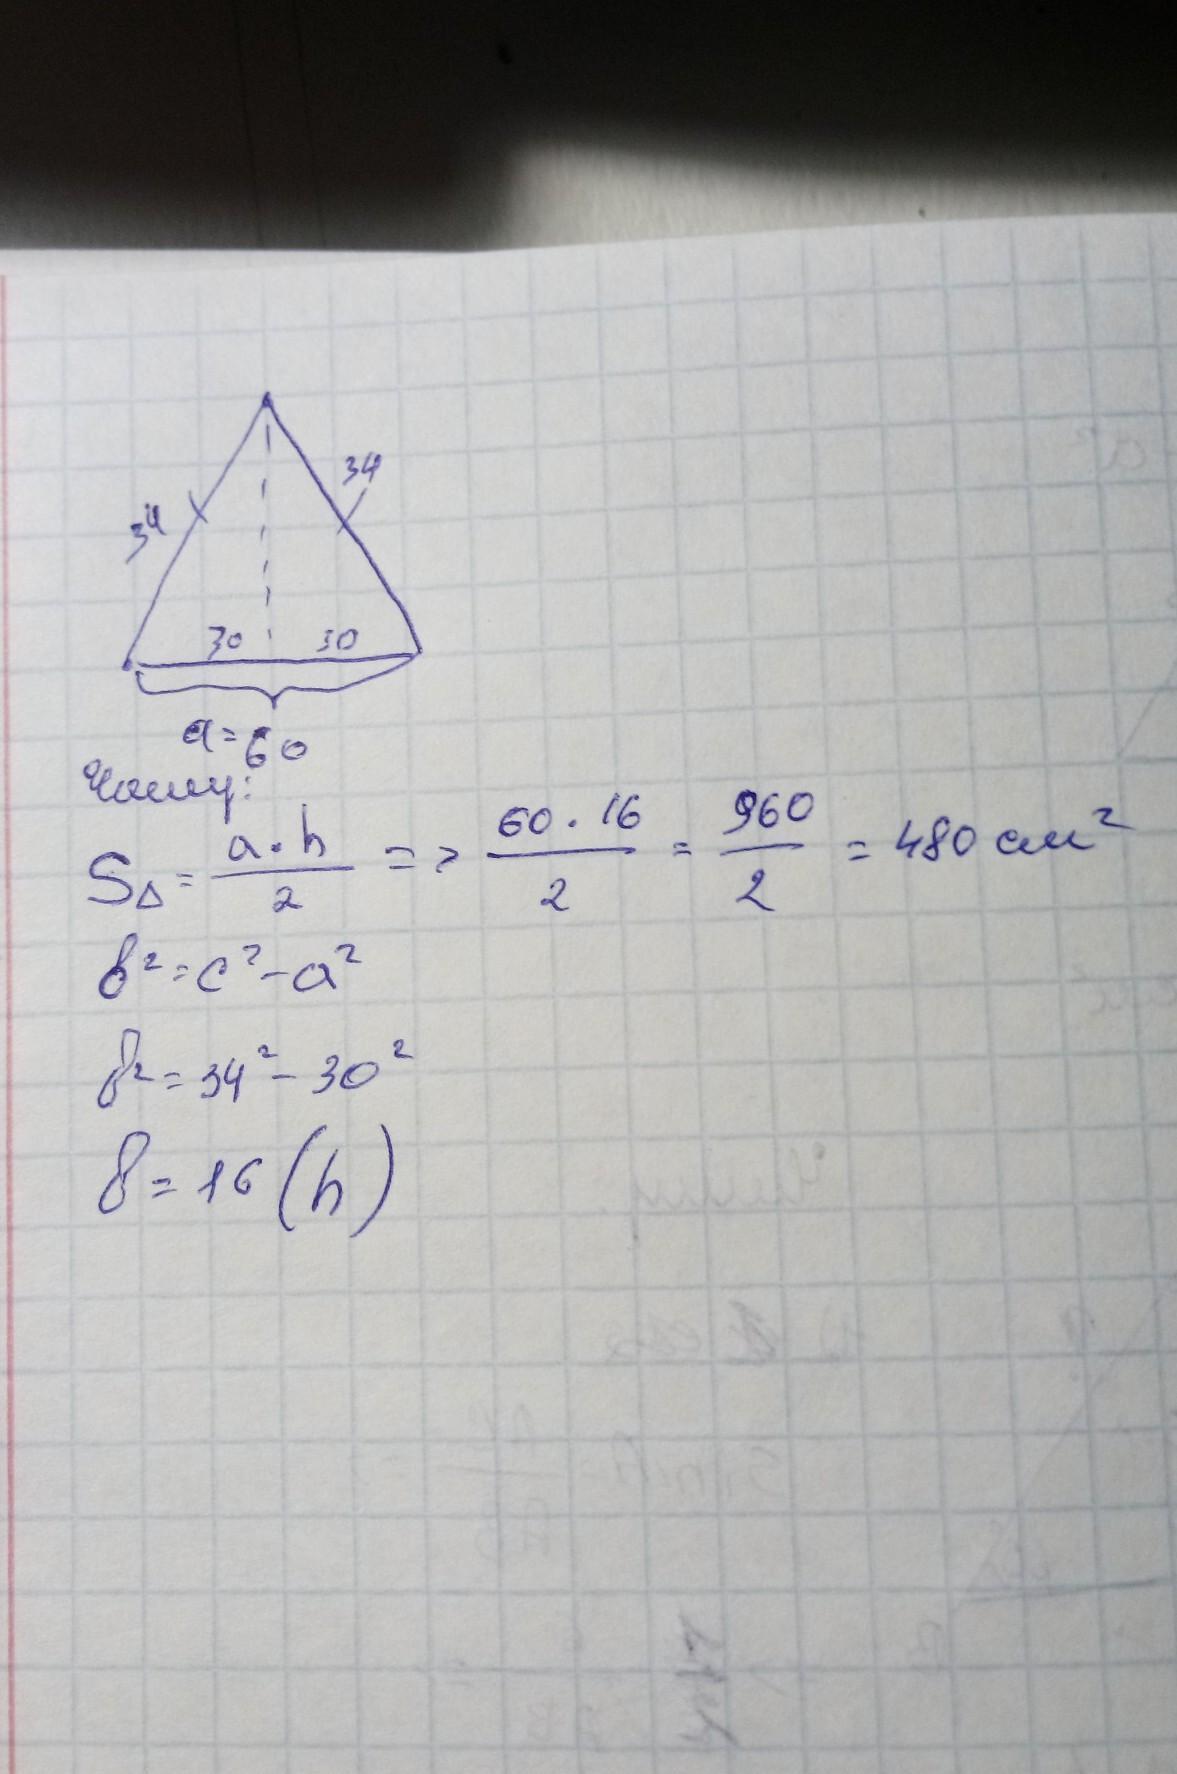 34
34
30 30
a=60
Чому:
S△ = a·h/2 => 60·16/2 = 960/2 = 480 см²
b² = c² - a²
b² = 34² - 30²
b = 16 (h)